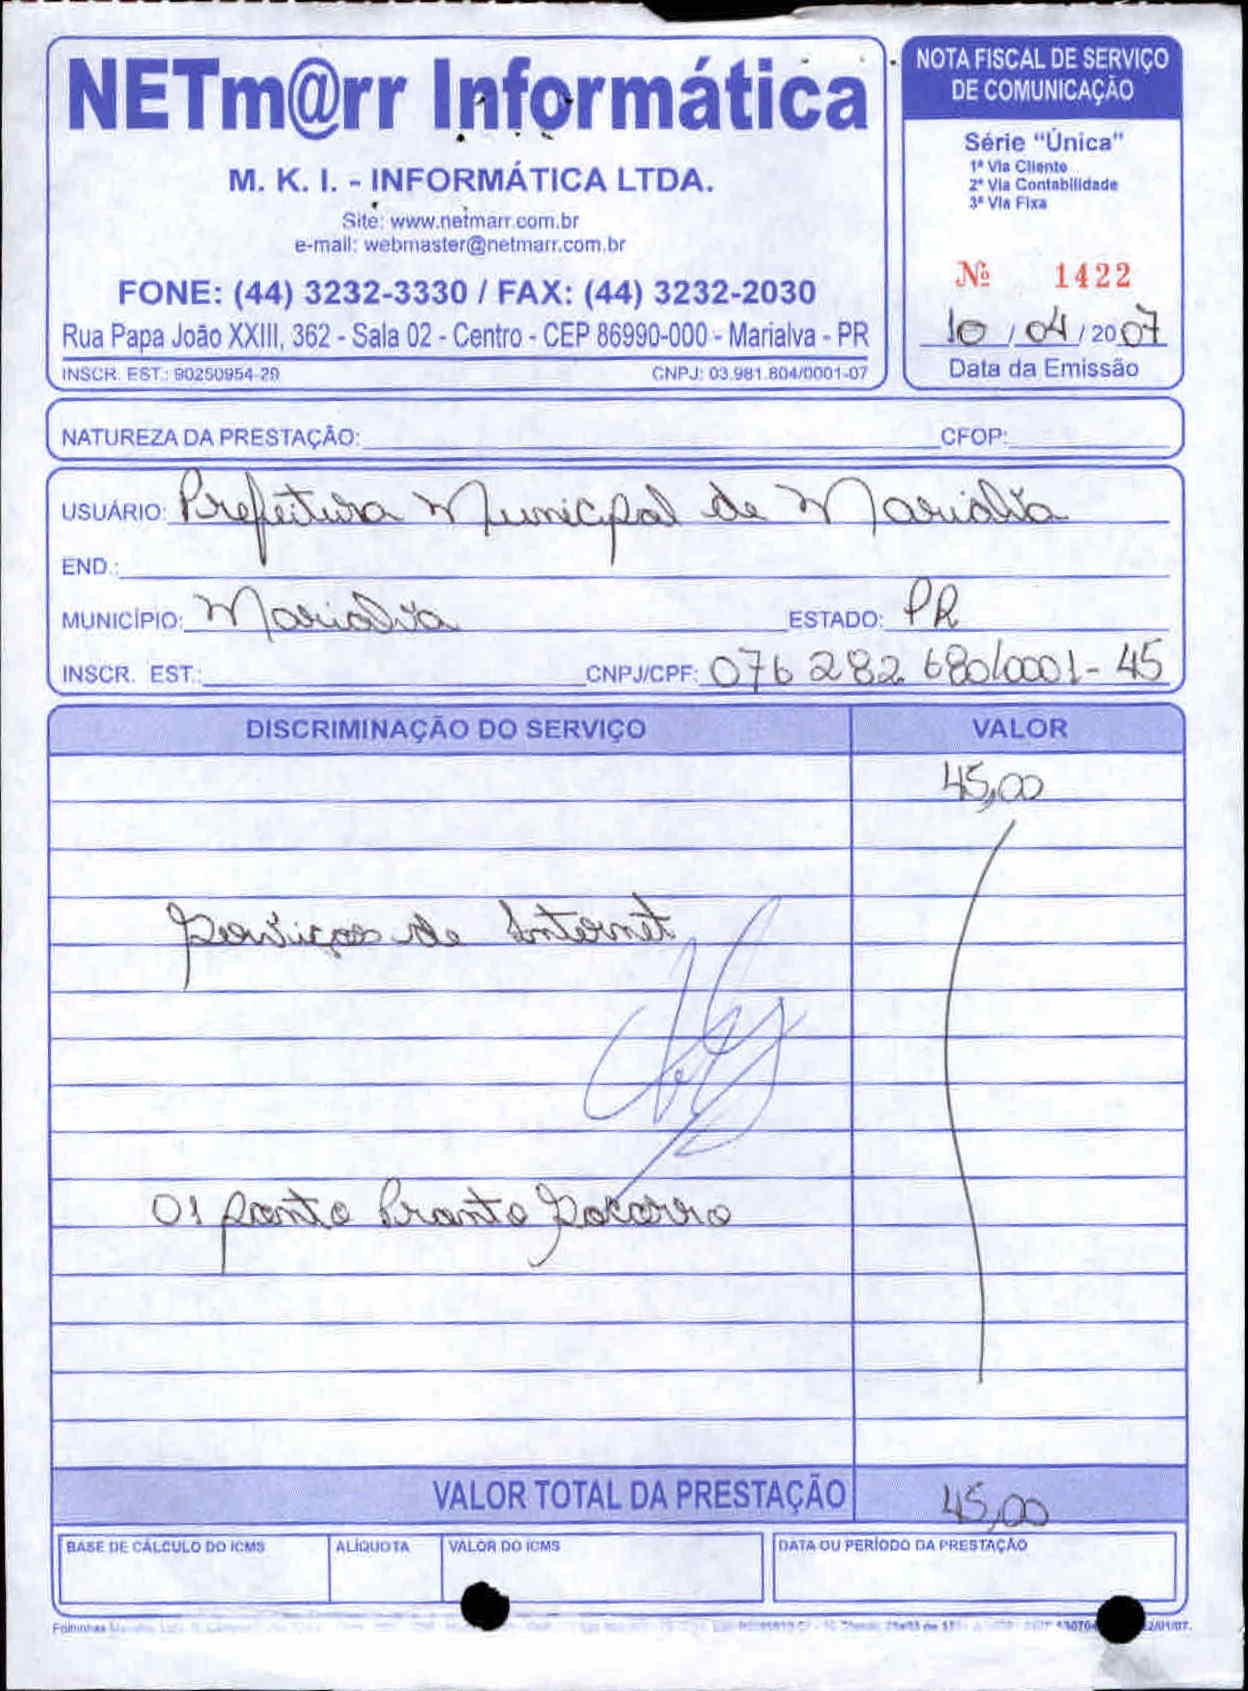 NETm@rr Informática
M. K. I. - INFORMÁTICA LTDA.
Site: www.netmarr.com.br
e-mail: webmaster@netmarr.com.br
FONE: (44) 3232-3330 / FAX: (44) 3232-2030
Rua Papa João XXIII, 362 - Sala 02 - Centro - CEP 86990-000 - Marialva - PR
INSCR. EST.: 90250954-29 CNPJ: 03.981.804/0001-07
NOTA FISCAL DE SERVIÇO
DE COMUNICAÇÃO
Série "Única"
1ª Via Cliente
2ª Via Contabilidade
3ª Via Fixa
Nº 1422
10 / 04 / 2007
Data da Emissão
NATUREZA DA PRESTAÇÃO: CFOP:
USUÁRIO: Prefeitura Municipal de Marialva
END.:
MUNICÍPIO: Marialva ESTADO: PR
INSCR. EST.: CNPJ/CPF: 076 282 680/0001-45
DISCRIMINAÇÃO DO SERVIÇO VALOR
45,00
Serviços de Internet
01 ponto Pronto Socorro
VALOR TOTAL DA PRESTAÇÃO 45,00
BASE DE CÁLCULO DO ICMS ALÍQUOTA VALOR DO ICMS DATA OU PERÍODO DA PRESTAÇÃO